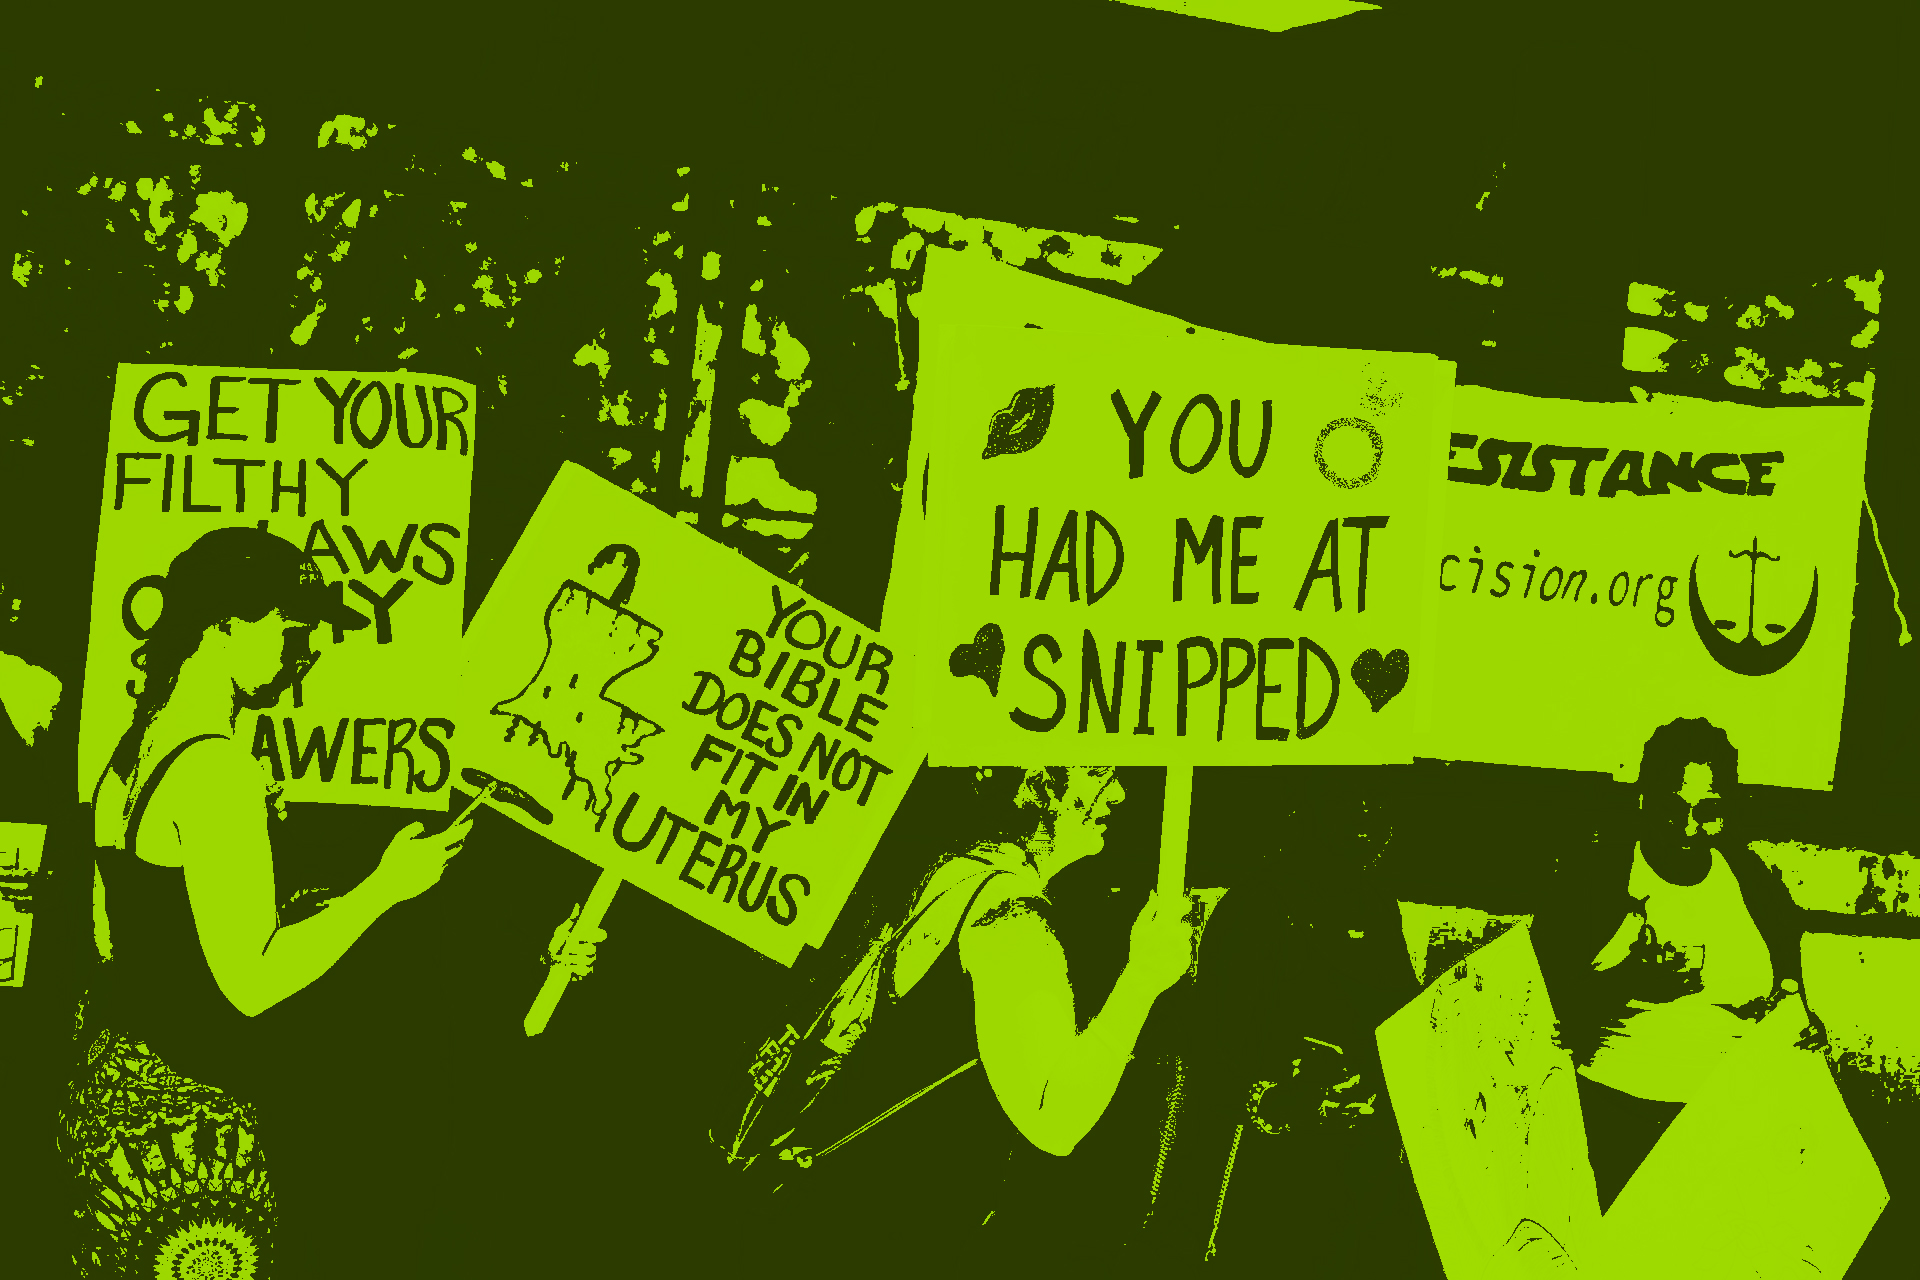 GET YOUR
FILTHY
LAWS
AWERS
YOUR
BIBLE
DOES NOT
FIT IN
MY
UTERUS
YOU
HAD ME AT
SNIPPED
ESISTANCE
cision.org